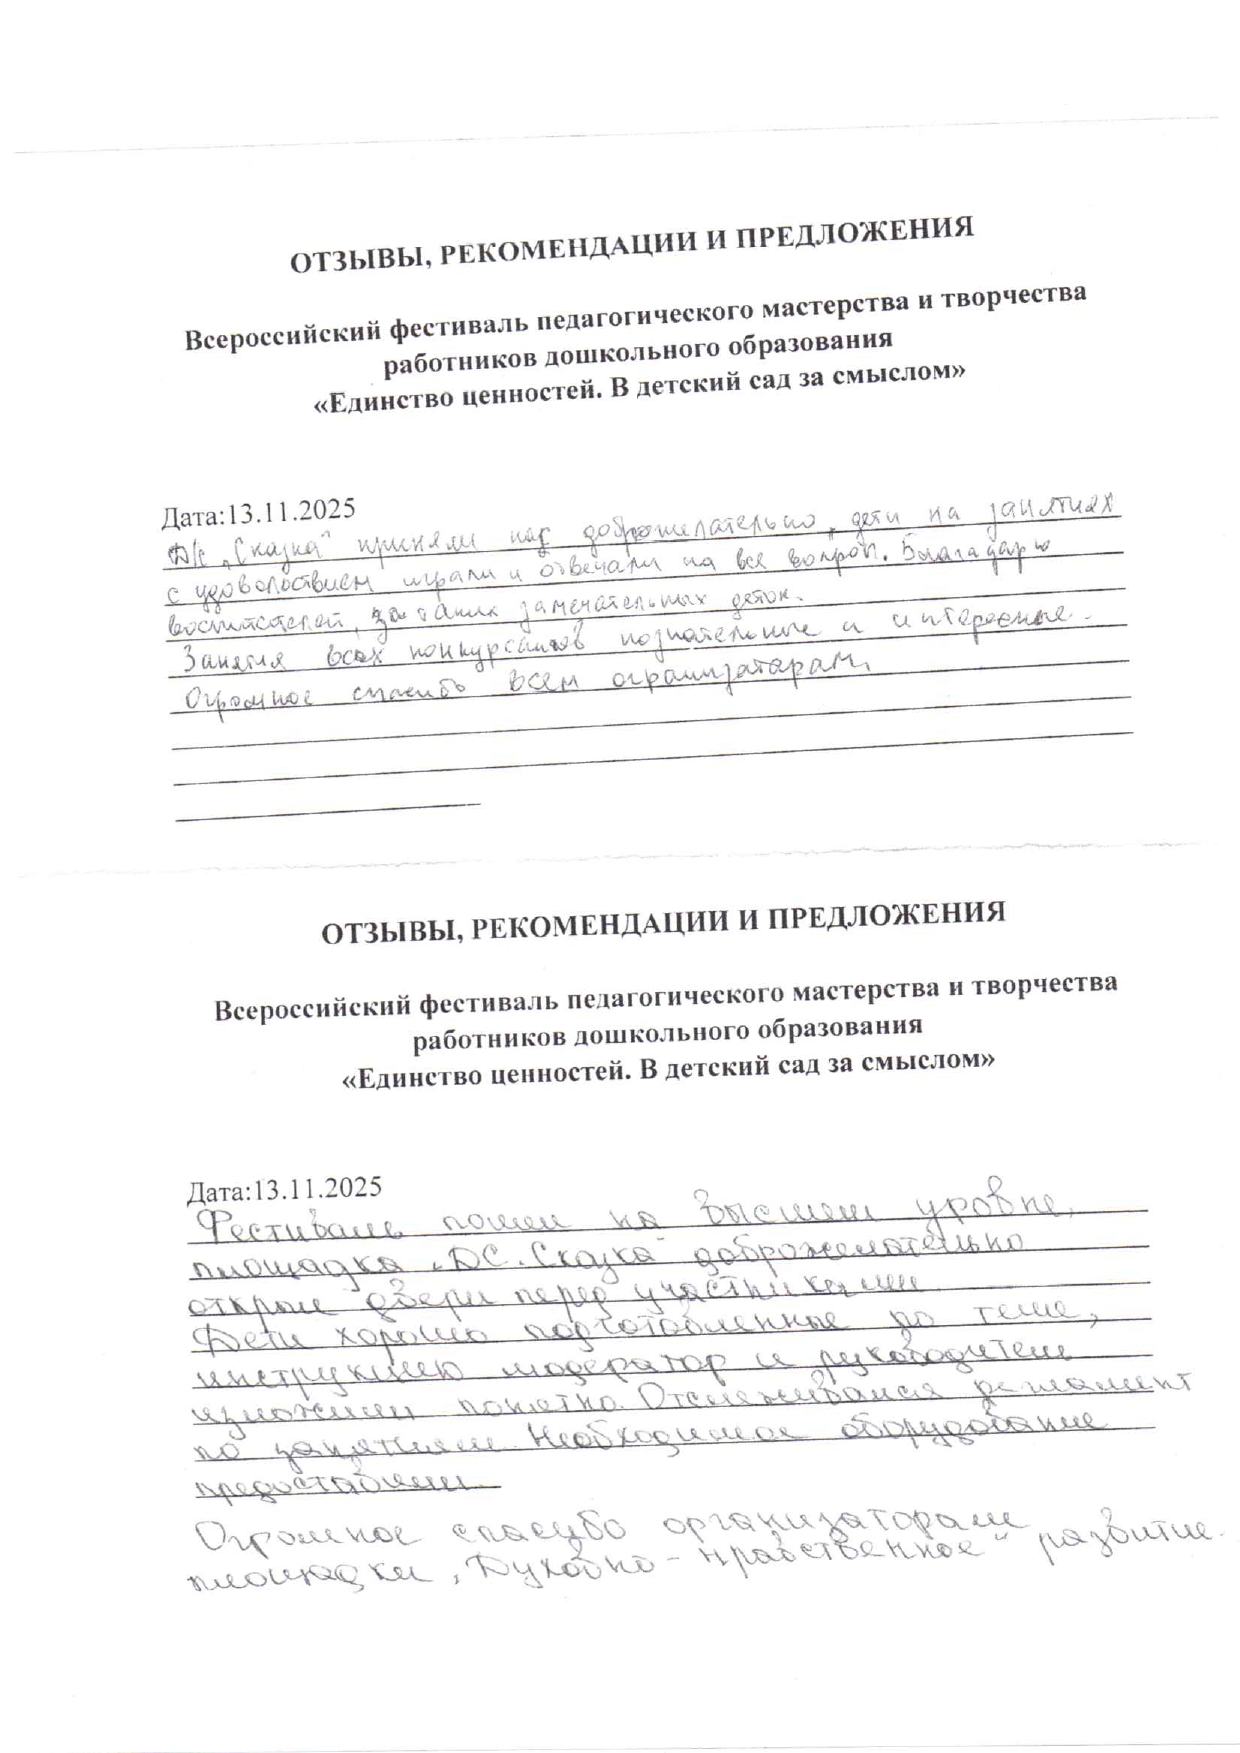 ОТЗЫВЫ, РЕКОМЕНДАЦИИ И ПРЕДЛОЖЕНИЯ
Всероссийский фестиваль педагогического мастерства и творчества
работников дошкольного образования
«Единство ценностей. В детский сад за смыслом»
Дата:13.11.2025
Д/с „Сказка" приняли нас доброжелательно, дети на занятиях
с удовольствием играли и отвечали на все вопрос. Благадарю
воспитателей, за таких замечательных деток.
Занятия всех конкурсантов познательные и интересные.
Огромное спасибо всем огранизатарам.
ОТЗЫВЫ, РЕКОМЕНДАЦИИ И ПРЕДЛОЖЕНИЯ
Всероссийский фестиваль педагогического мастерства и творчества
работников дошкольного образования
«Единство ценностей. В детский сад за смыслом»
Дата:13.11.2025
Фестиваль пошел на высшем уровне,
площадка „ДС. Сказка" доброжелательно
открыл двери перед участниками
Дети хорошо подготовленные по теме,
инструкцию модератор и руководители
изложили понятно. Отслеживался регламент
по занятиям. Необходимое оборудование
предоставили.
Огромное спасибо организаторам
площадки „Духовно - нравственное" развитие.